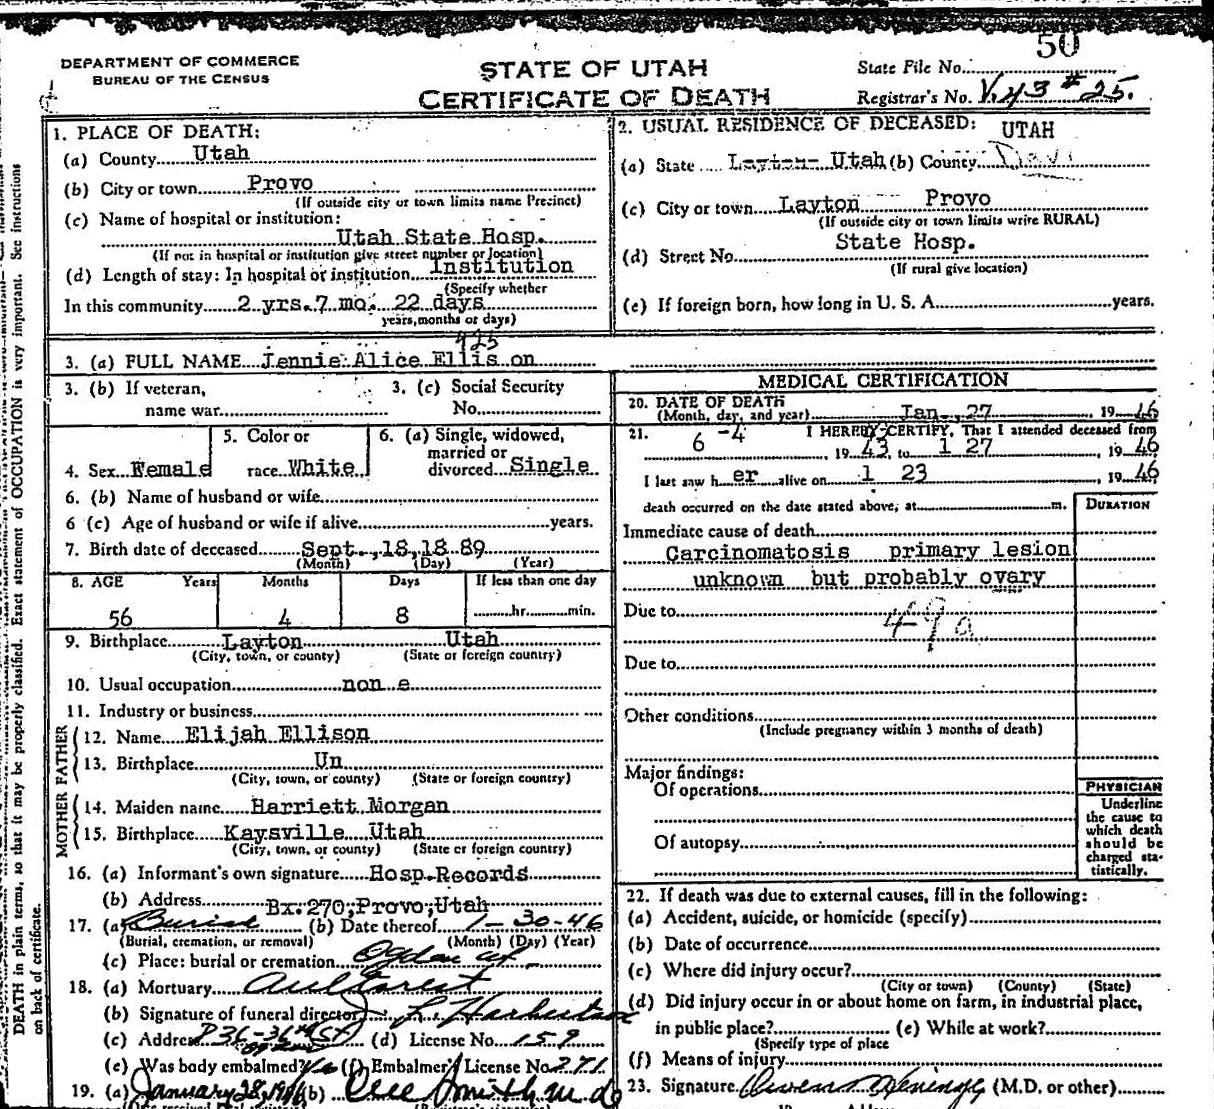 50
DEPARTMENT OF COMMERCE
BUREAU OF THE CENSUS
STATE OF UTAH
CERTIFICATE OF DEATH
State File No.
Registrar's No. V.43 #25.
1. PLACE OF DEATH:
(a) County Utah
(b) City or town Provo
(If outside city or town limits name Precinct)
(c) Name of hospital or institution:
Utah State Hosp.
(If not in hospital or institution give street number or location)
(d) Length of stay: In hospital or institution Institution
(Specify whether
In this community 2 yrs. 7 mo. 22 days
years, months or days)
2. USUAL RESIDENCE OF DECEASED: UTAH
(a) State Layton Utah (b) County Davi
(c) City or town Layton Provo
(If outside city or town limits write RURAL)
State Hosp.
(d) Street No.
(If rural give location)
(e) If foreign born, how long in U. S. A. years.
925
3. (a) FULL NAME Jennie Alice Ellison
3. (b) If veteran, name war
3. (c) Social Security No.
4. Sex Female
5. Color or race White
6. (a) Single, widowed, married or divorced Single
6. (b) Name of husband or wife
6 (c) Age of husband or wife if alive years.
7. Birth date of deceased Sept. 18, 18 89
(Month) (Day) (Year)
8. AGE Years Months Days If less than one day
56 4 8 hr. min.
9. Birthplace Layton Utah
(City, town, or county) (State or foreign country)
10. Usual occupation non e
11. Industry or business
FATHER
12. Name Elijah Ellison
13. Birthplace Un
(City, town, or county) (State or foreign country)
MOTHER
14. Maiden name Harriett Morgan
15. Birthplace Kaysville Utah
(City, town, or county) (State or foreign country)
16. (a) Informant's own signature Hosp. Records
(b) Address Bx. 270, Provo, Utah
17. (a) Burial (b) Date thereof 1-30-46
(Burial, cremation, or removal) (Month) (Day) (Year)
(c) Place: burial or cremation Ogden
18. (a) Mortuary Aultorest
(b) Signature of funeral director
(c) Address (d) License No. 159
(e) Was body embalmed? Yes (f) Embalmer's License No. 271
19. (a) January 28, 1946 (b)
MEDICAL CERTIFICATION
20. DATE OF DEATH
(Month, day, and year) Jan. 27 1946
21. I HEREBY CERTIFY, That I attended deceased from
6 -4, 19 43, to 1 27, 19 46
I last saw h er alive on 1 23, 19 46
death occurred on the date stated above, at m.
DURATION
Immediate cause of death
Carcinomatosis primary lesion
unknown but probably ovary
Due to 49a
Due to
Other conditions
(Include pregnancy within 3 months of death)
Major findings:
Of operations
Of autopsy
PHYSICIAN
Underline
the cause to
which death
should be
charged sta-
tistically.
22. If death was due to external causes, fill in the following:
(a) Accident, suicide, or homicide (specify)
(b) Date of occurrence
(c) Where did injury occur?
(City or town) (County) (State)
(d) Did injury occur in or about home on farm, in industrial place,
in public place? (e) While at work?
(Specify type of place
(f) Means of injury
23. Signature (M.D. or other)
DEATH in plain terms, so that it may be properly classified. Exact statement of OCCUPATION is very important. See instructions
on back of certificate.